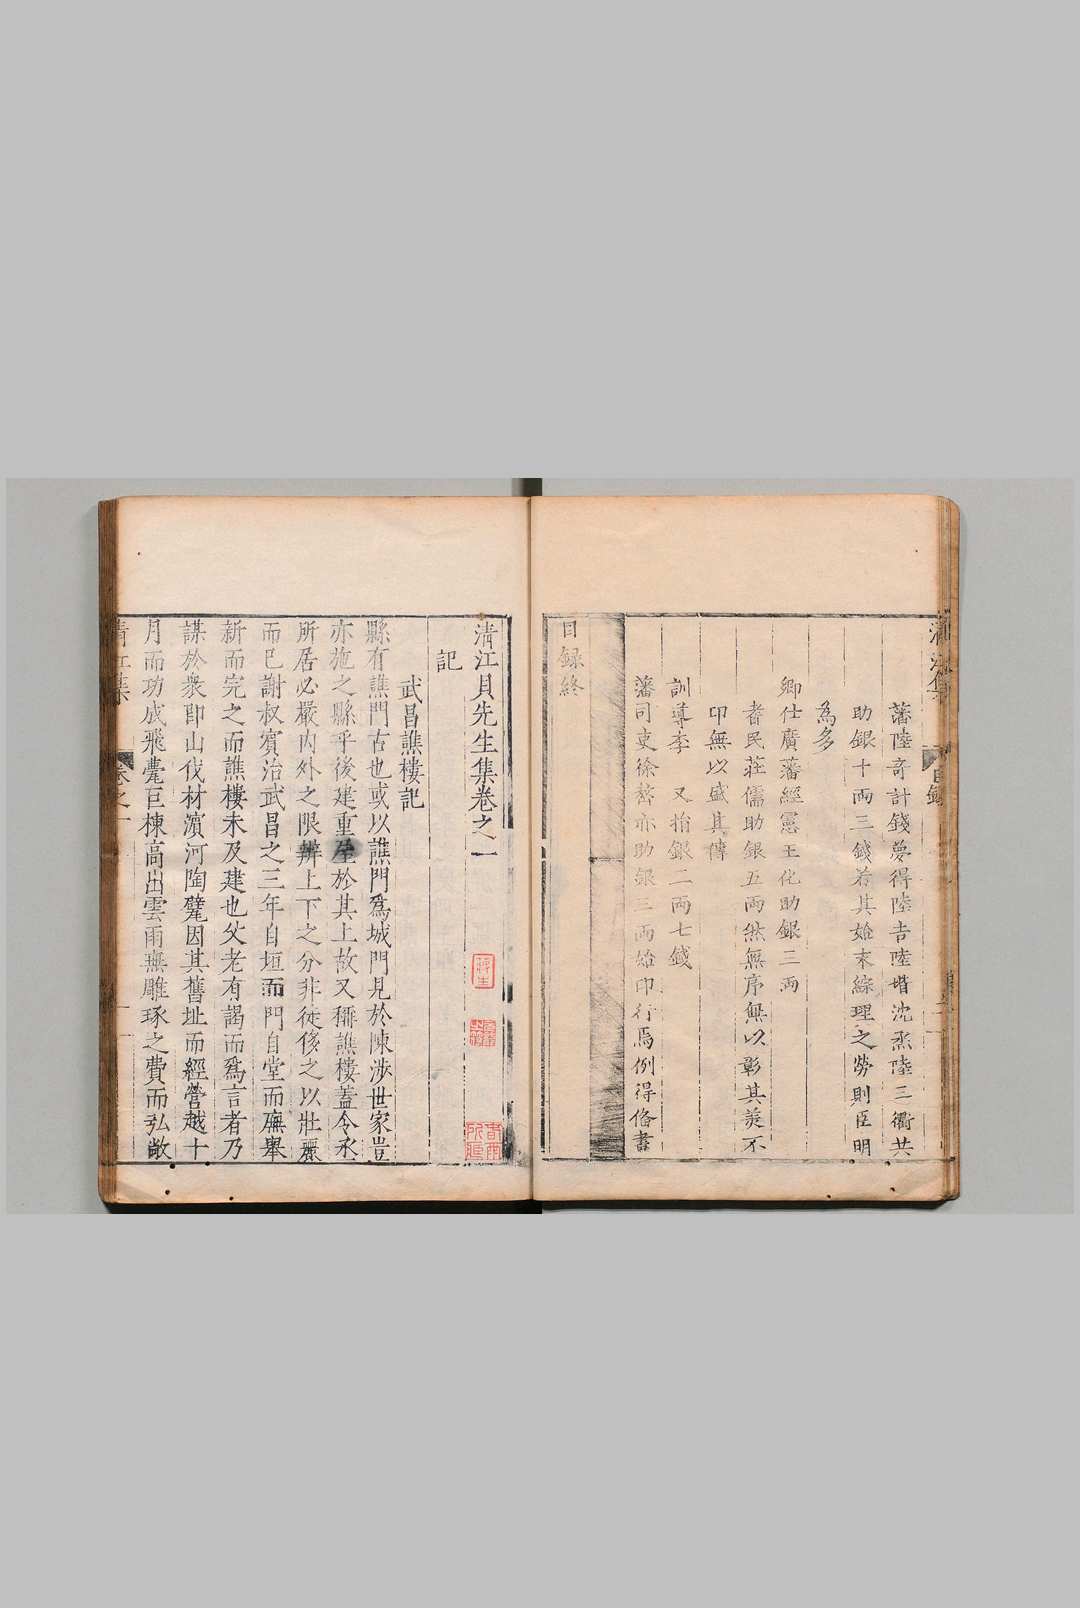 清江集
目錄
藩陸竒計錢夢得陸吉陸堦沈烝陸三衢共
助銀十兩三錢若其始末綜理之勞則臣明
為多
鄉仕廣藩經憲王化助銀三兩
耆民莊儒助銀五兩然無序無以彰其羙不
印無以盛其傳
訓導李 又捐銀二兩七錢
藩司吏徐 亦助銀三兩始印行焉例得俻書
目録終
清江貝先生集卷之一
記
武昌譙樓記
縣有譙門古也或以譙門爲城門見於陳涉世家豈
亦施之縣乎後建重屋於其上故又稱譙樓蓋令丞
所居必嚴内外之限辨上下之分非徒侈之以壯麗
而已謝叔賓治武昌之三年自垣而門自堂而廡舉
新而完之而譙樓未及建也父老有謁而爲言者乃
謀於衆卽山伐材濵河陶甓因其舊址而經營越十
月而功成飛甍巨棟高出雲雨無雕琢之費而弘敞
清江集
卷之一